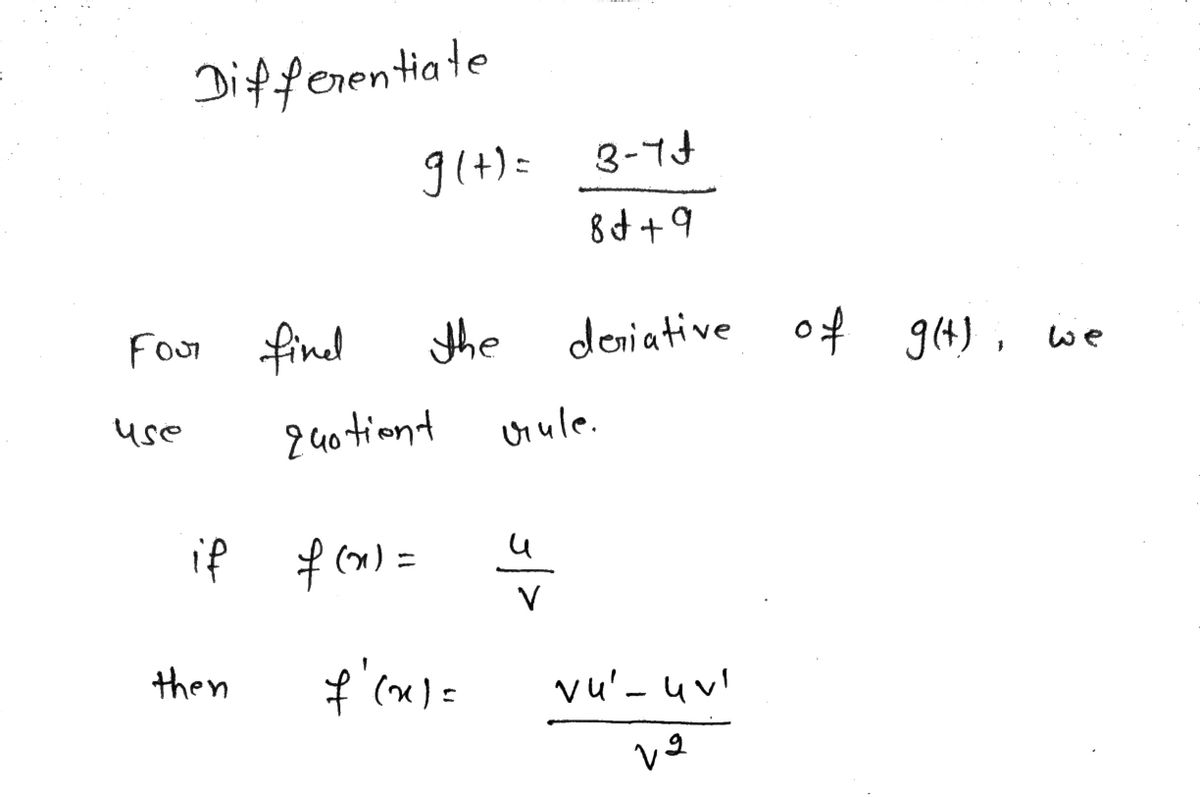 Differentiate
g(t) = 3-7t / 8t+9
For find the deriative of g(t), we
use quotient rule.
if f(x) = u / v
then f'(x) = vu' - uv' / v2